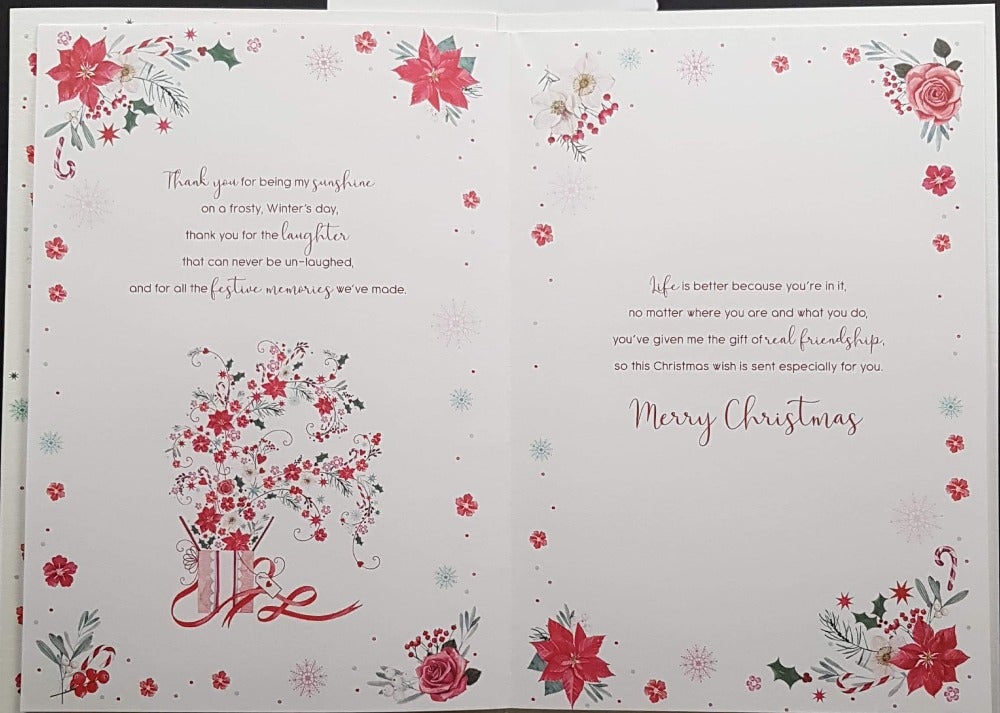 Thank you for being my sunshine
on a frosty, Winter's day,
thank you for the laughter
that can never be un-laughed,
and for all the festive memories we've made.
Life is better because you're in it,
no matter where you are and what you do,
you've given me the gift of real friendship,
so this Christmas wish is sent especially for you.
Merry Christmas